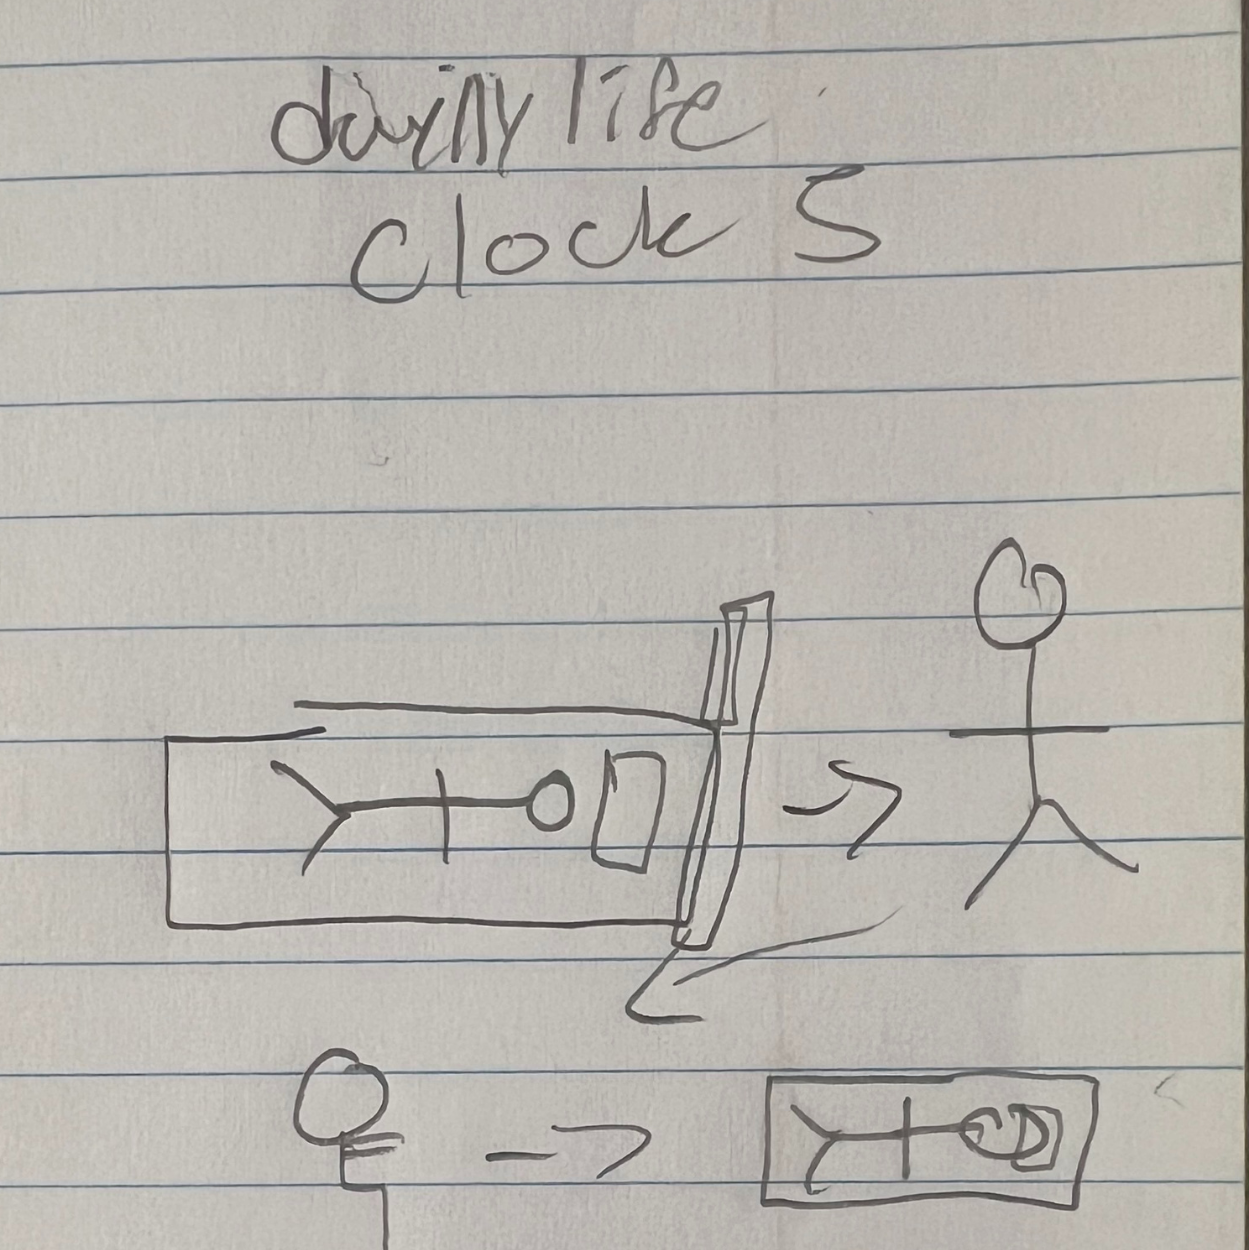 daily life
clock 5